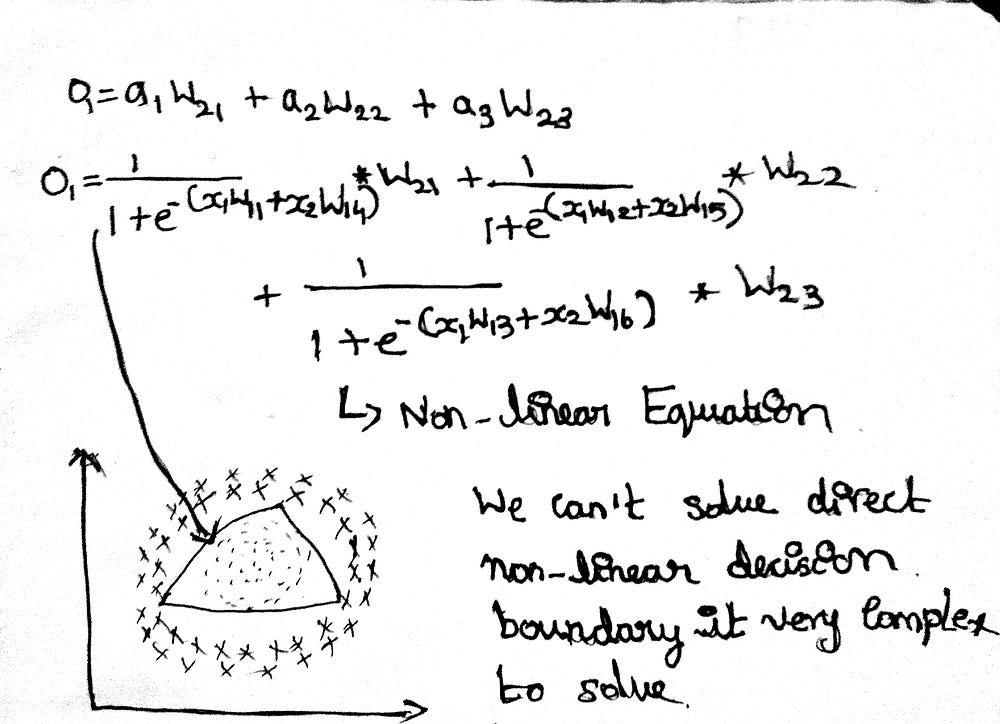 O₁=a₁W₂₁ + a₂W₂₂ + a₃W₂₃
O₁ = 1/(1+e^-(x₁W₁₁+x₂W₁₄)) * W₂₁ + 1/(1+e^-(x₁W₁₂+x₂W₁₅)) * W₂₂
+ 1/(1+e^-(x₁W₁₃+x₂W₁₆)) * W₂₃
↳ Non-linear Equation
We can't solve direct
non-linear decision
boundary it very complex
to solve.